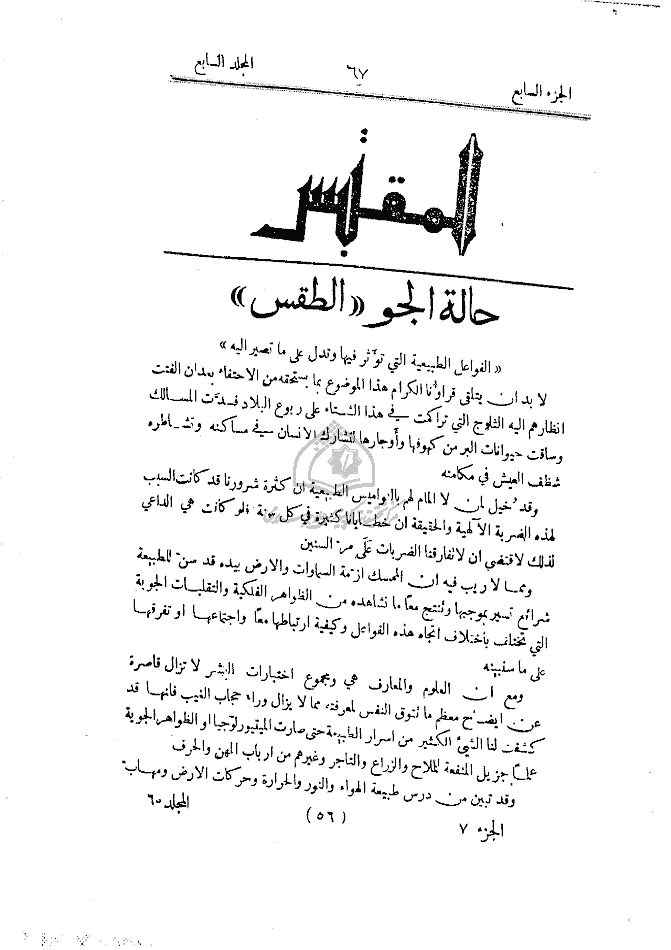 الجزء السابع ٦٧ المجلد السابع
المقتبس
حالة الجو «الطقس»
« الفواعل الطبيعية التي توٓثر فيها وتدل على ما تصير اليه »
لا بد ان يتلقى قراوٓنا الكرام هذا الموضوع بما يستحقه من الاحتفاء بعدان الفتت
انظارهم اليه الثلوج التي تراكمت في هذا الشتاء على ربوع البلاد فسدَّت المسالك
وساقت حيوانات البر من كهوفها وأوجارها لتشارك الانسان في مساكنه وتشاطره
شظف العيش في مكامنه
وقد خيل لمن لا المام لهم بالنواميس الطبيعية ان كثرة شرورنا قد كانت السبب
لهذه الضربة الآلهية والحقيقة ان خطايانا كثيرة في كل سنة فلو كانت هي الداعي
لذلك لاقتضى ان لا تفارقنا الضربات عَلَى مرّ السنين
ومما لا ريب فيه ان الممسك ازمة السماوات والارض بيده قد سنّ للطبيعة
شرائع تسير بموجبها ولنتج معاً ما نشاهده من الظواهر الفلكية والتقلبات الجوية
التي تختلف بأختلاف اتجاه هذه الفواعل وكيفية ارتباطها معاً واجتماعها او تفرقها
على ما سنبينه
ومع ان العلوم والمعارف هي ومجموع اختبارات البشر لا تزال قاصرة
عن ايضاح معظم ما نتوق النفس لمعرفته مما لا يزال وراء حجاب الغيب فانها قد
كشفت لنا الشيئ الكثير من اسرار الطبيعة حتى صارت الميتيورلوجيا او الظواهر الجوية
علماً جزيل المنفعة للملاح والزراع والتاجر وغيرهم من ارباب المهن والحرف
وقد تبين من درس طبيعة الهواء والنور والحرارة وحركات الارض ومهاب
الجزء ٧ (٥٦) المجلد ٦٠